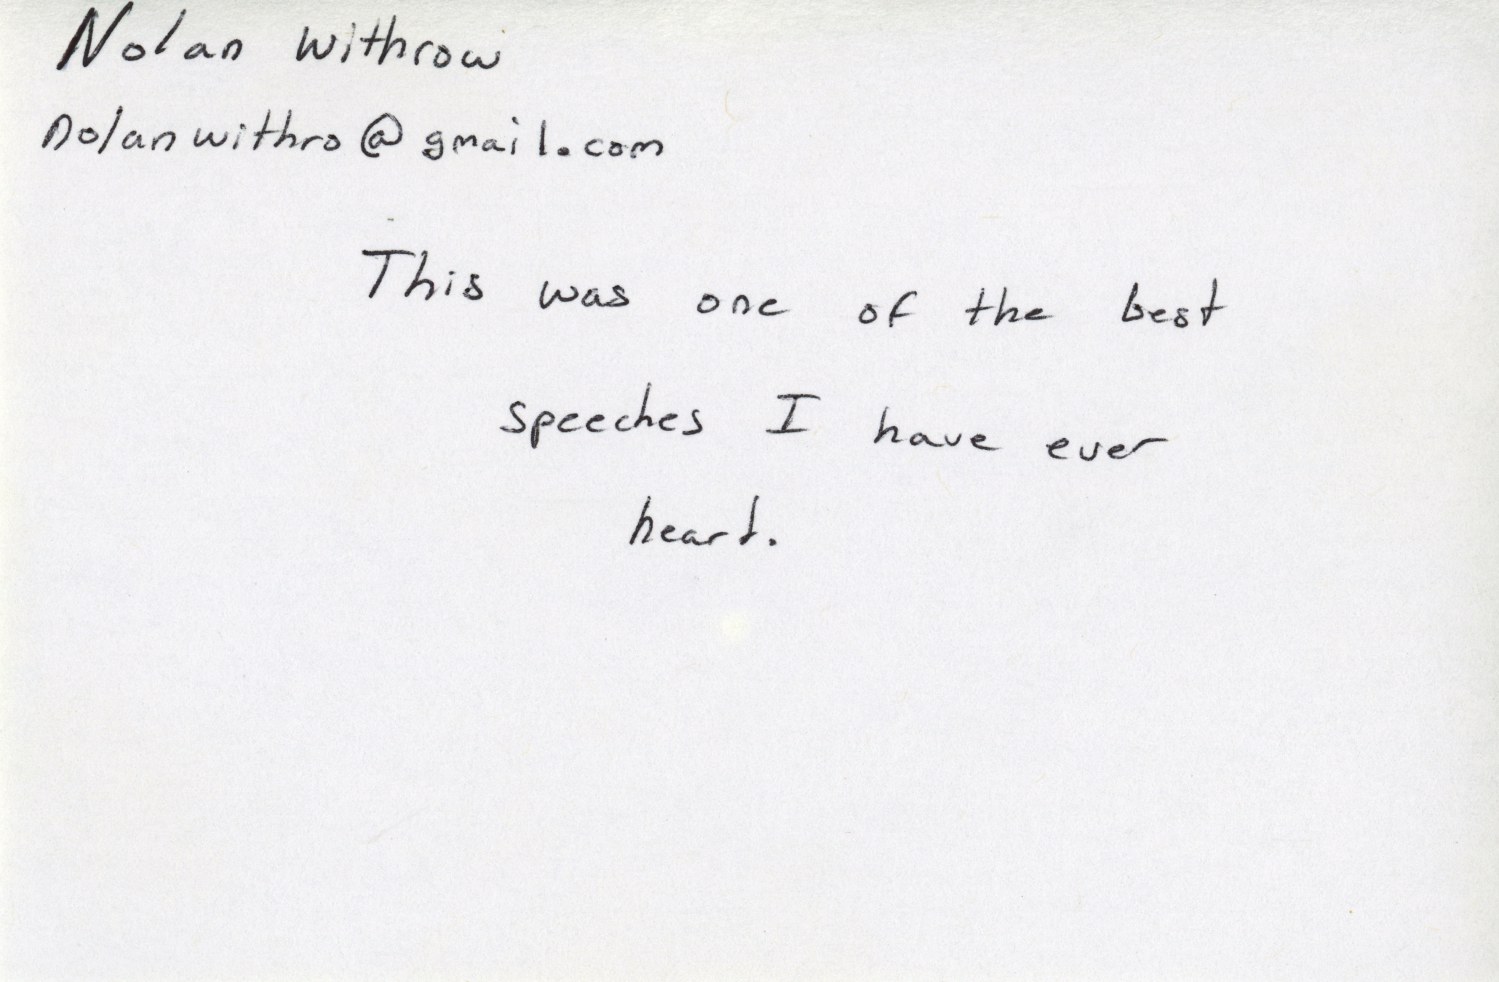 Nolan Withrow
nolanwithro@gmail.com
This was one of the best
speeches I have ever
heard.